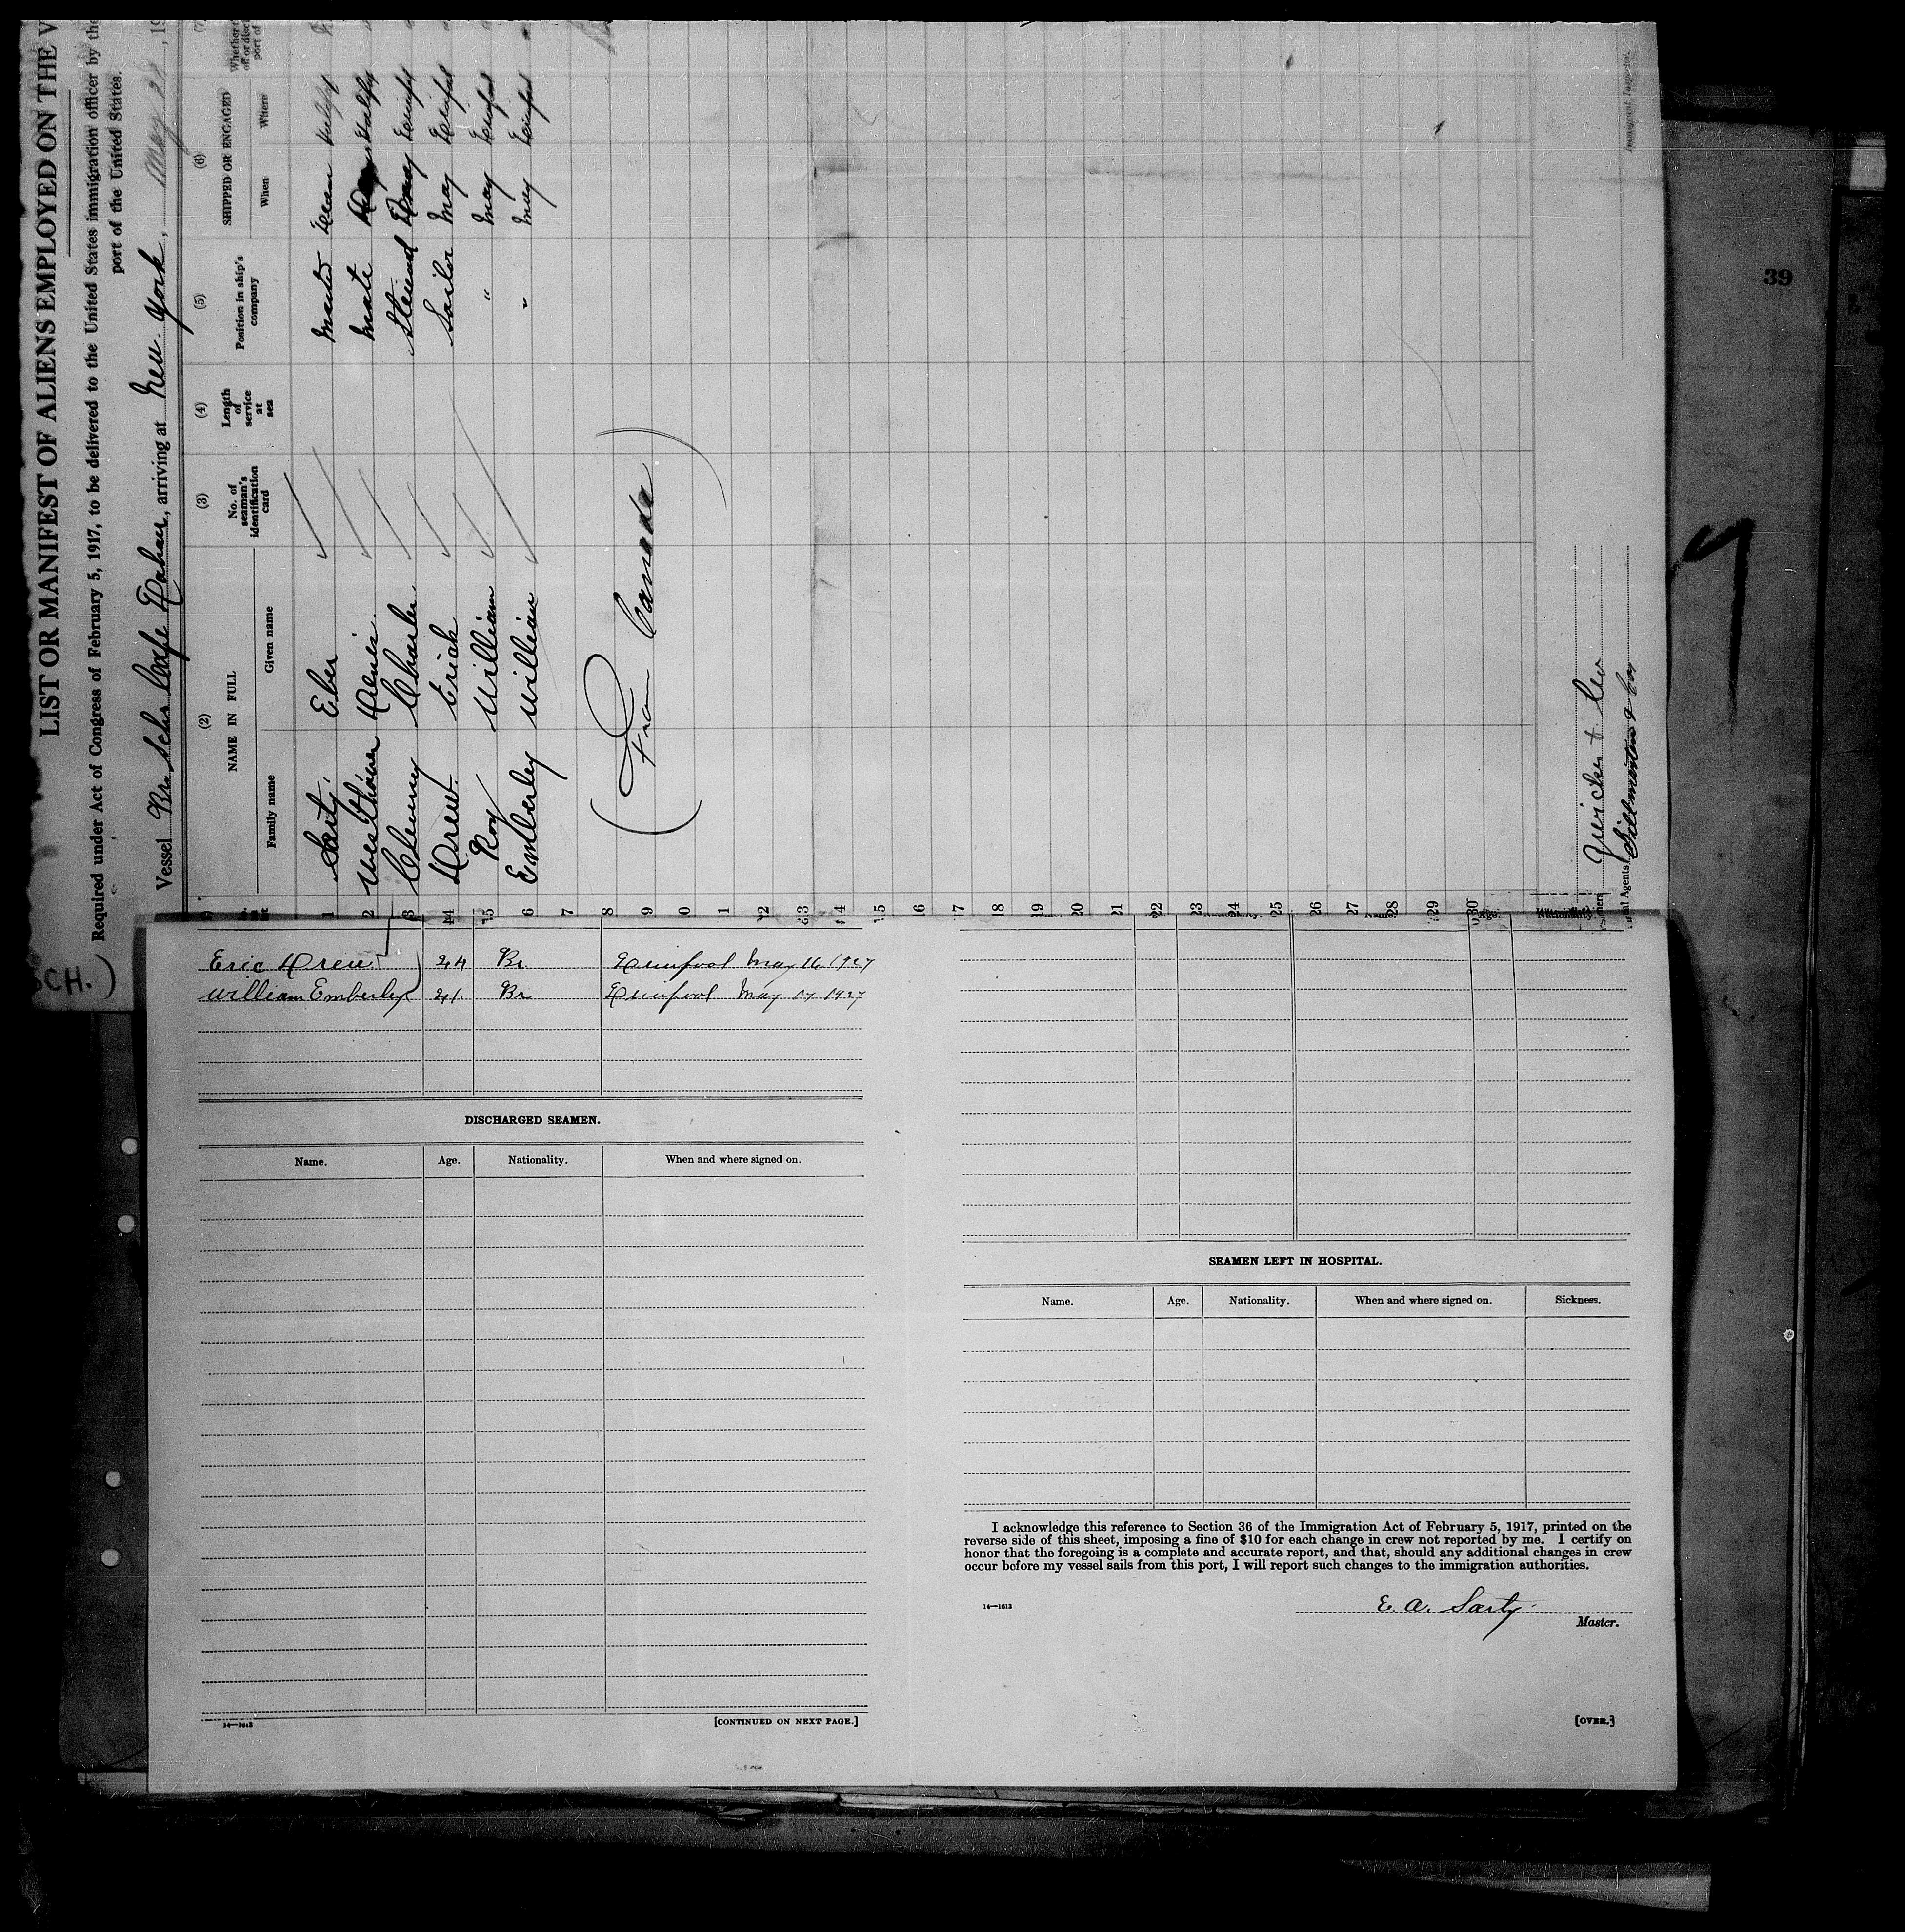 LIST OR MANIFEST OF ALIENS EMPLOYED ON THE V
Required under Act of Congress of February 5, 1917, to be delivered to the United States immigration officer by the
port of the United States.
Vessel Br. Schr , arriving at New York, May 28, 19
(2) (3) (4) (5) (6) (7)
NAME IN FULL
Family name Given name
No. of seaman's identification card
Length of service at sea
Position in ship's company
SHIPPED OR ENGAGED
When Where
Whether
port of
1 Sarty Eber Master Halifax
2 Denis Mate Halifax
3 Charles Steward May
4 Drew Erick Sailor May
5 Roy William " May
6 Emberley William " May
7
8
9
(From Canada)
16
17
18
19
20
21
22
23
24
25
26
27
28
29
30
Zwicker & Co
Immigrant Inspector.
39
SCH.)
Eric Drew 24 Br May 16 1927
William Emberley 21 Br May 17 1927
DISCHARGED SEAMEN.
Name. Age. Nationality. When and where signed on.
14—1613
[CONTINUED ON NEXT PAGE.]
SEAMEN LEFT IN HOSPITAL.
Name. Age. Nationality. When and where signed on. Sickness.
I acknowledge this reference to Section 36 of the Immigration Act of February 5, 1917, printed on the
reverse side of this sheet, imposing a fine of $10 for each change in crew not reported by me. I certify on
honor that the foregoing is a complete and accurate report, and that, should any additional changes in crew
occur before my vessel sails from this port, I will report such changes to the immigration authorities.
14—1613
E. A. Sarty
Master.
[OVER.]